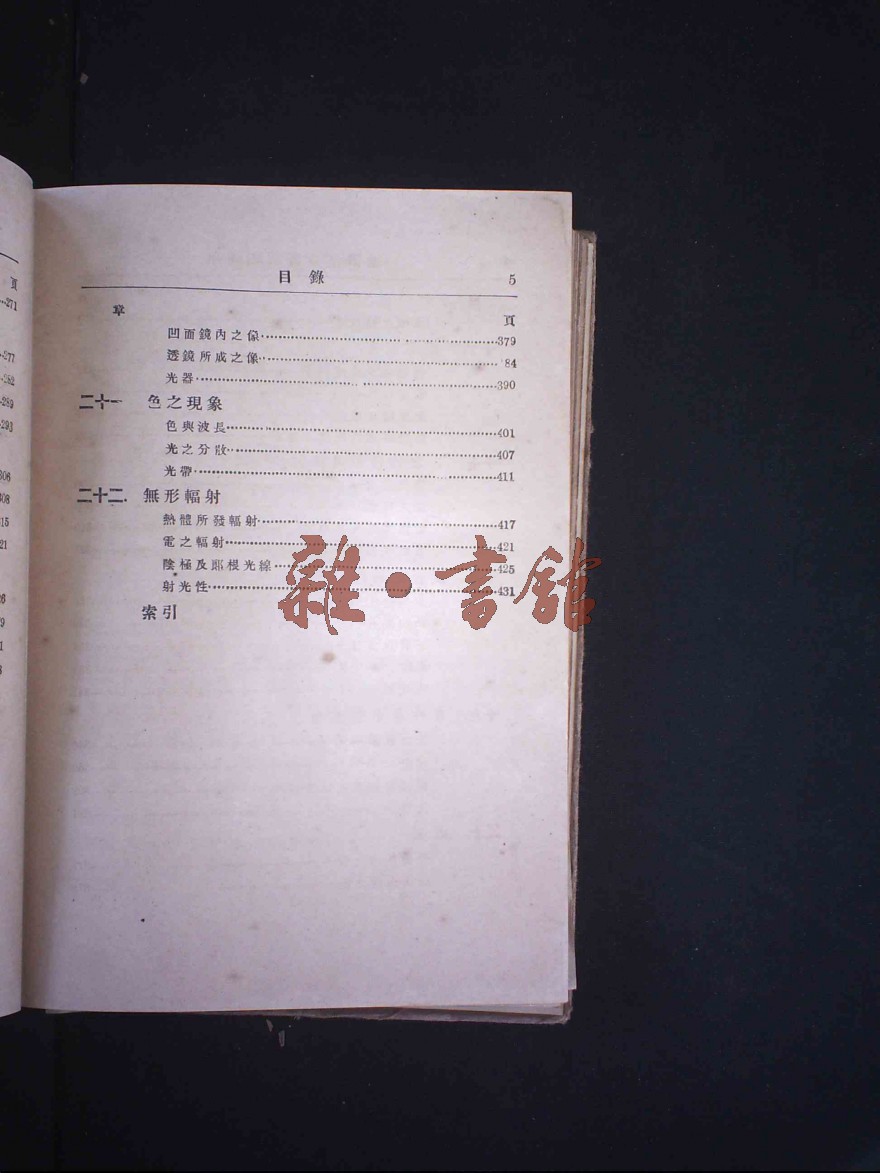 頁
271
277
282
289
293
306
308
315
321
目錄 5
章 頁
凹面鏡內之像 379
透鏡所成之像 84
光器 390
二十一 色之現象
色與波長 401
光之分散 407
光帶 411
二十二. 無形輻射
熱體所發輻射 417
電之輻射 421
陰極及郎根光線 425
射光性 431
索引
雜·書館